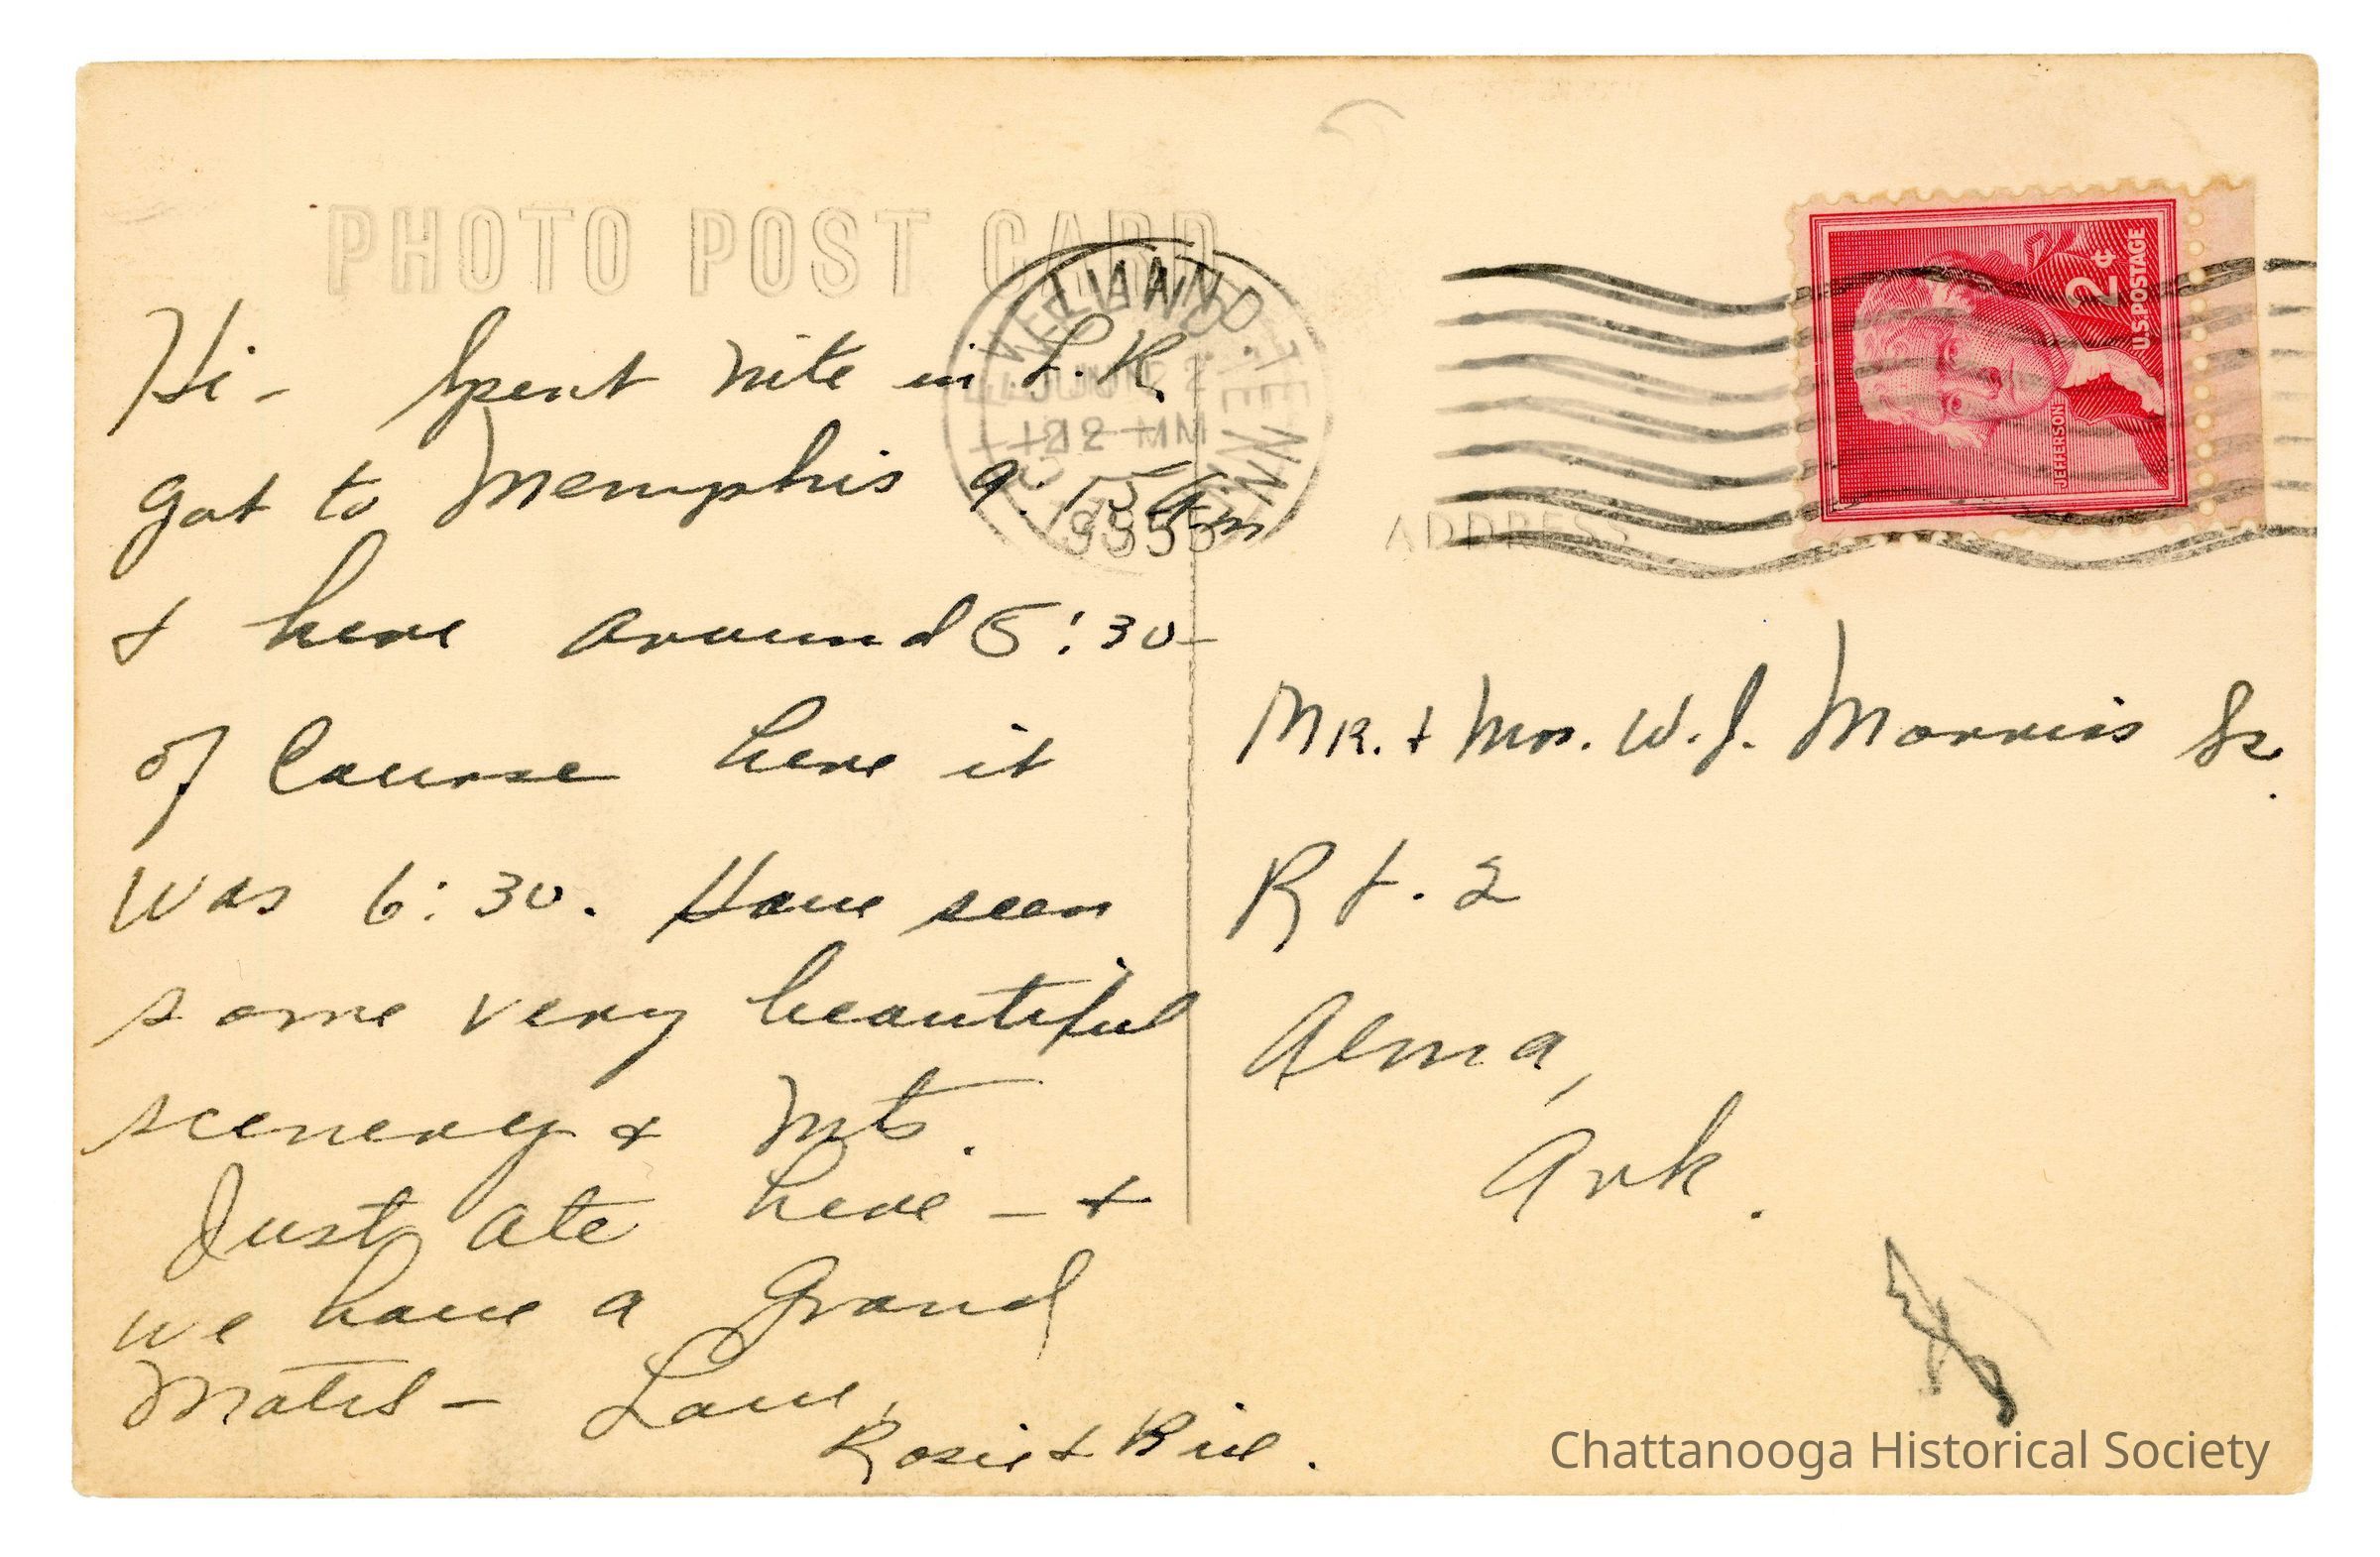 PHOTO POST CARD
Hi - Spent nite in L.R.
got to Memphis 9:15 am
+ here around 5:30 -
of course here it
was 6:30. Have seen
some very beautiful
scenery + mts.
Just ate here - +
we have a grand
motel - Love,
Rosie + Bill.
CLEVELAND TENN.
JUN 2
12 M
1955
ADDRESS
2¢
U.S. POSTAGE
JEFFERSON
MR. + Mrs. W.J. Morris Sr.
Rt. 2
Alma,
Ark.
Chattanooga Historical Society